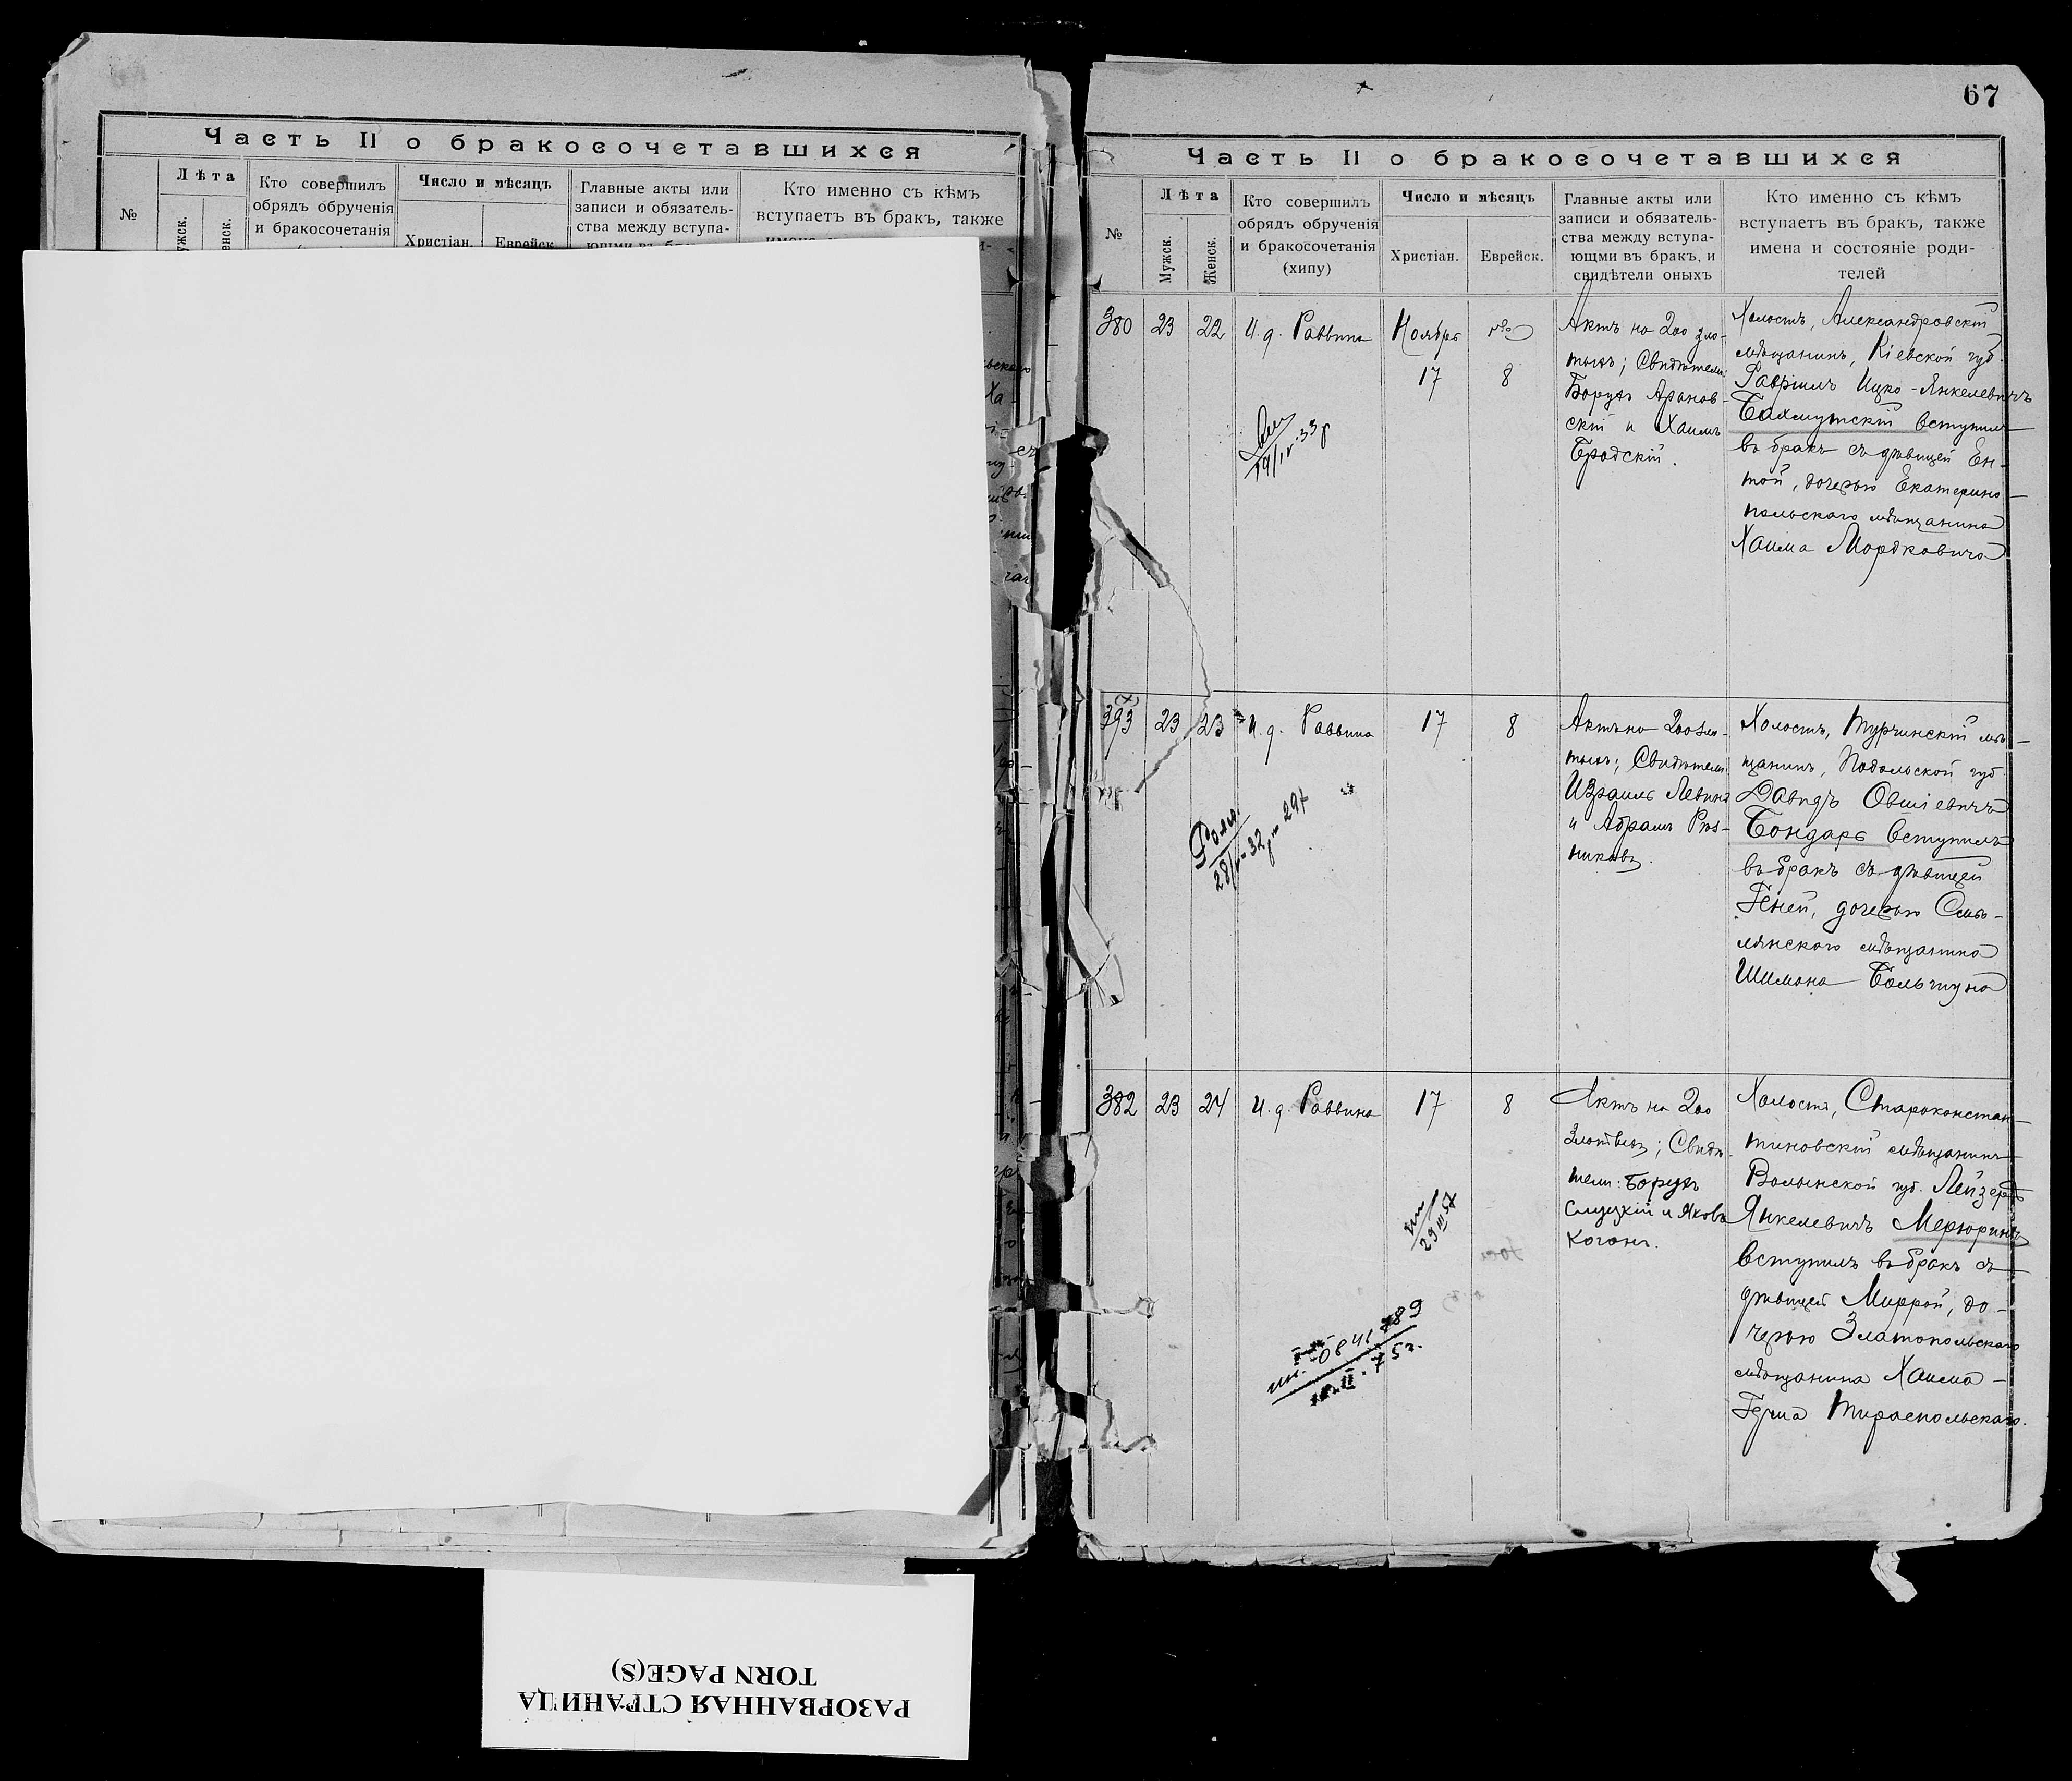 67
Часть II о бракосочетавшихся
№
Лѣта
Кто совершилъ
обрядъ обрученія
и бракосочетанія
Число и мѣсяцъ
Христіан.
Еврейск.
Главные акты или
записи и обязатель-
ства между вступа-
Кто именно съ кѣмъ
вступаетъ въ бракъ, также
Часть II о бракосочетавшихся
№
Лѣта
Мужск.
Женск.
Кто совершилъ
обрядъ обрученія
и бракосочетанія
(хипу)
Число и мѣсяцъ
Христіан.
Еврейск.
Главные акты или
записи и обязатель-
ства между вступа-
ющми въ бракъ, и
свидѣтели оныхъ
Кто именно съ кѣмъ
вступаетъ въ бракъ, также
имена и состояніе роди-
телей
380
23
22
И. д. Раввина
Ноябрь
17
8
Актъ на 200 зло-
тыхъ; Свидѣтели:
Борухъ Аранов-
скій и Хаимъ
Бродскій.
Холостъ, Александровскій
мѣщанинъ, Кіевской губ.
Гавріилъ Ицко-Янкелевичъ
Бахмутскій вступилъ
въ бракъ съ дѣвицей Ен-
той, дочерью Екатерино-
польского мѣщанина
Хаима Мордковича
393
23
23
И. д. Раввина
17
8
Актъ на 200 зло-
тыхъ; Свидѣтели:
Израиль Левинъ
и Абрамъ
Холостъ, Турчинскій мѣ-
щанинъ, Подольской губ.
Давидъ Овшіевичъ
Бондарь вступилъ
въ бракъ съ дѣвицей
Геней, дочерью Смѣ-
лянского мѣщанина
Шимона Болтуна
382
23
24
И. д. Раввина
17
8
Актъ на 200
Злотыхъ; Свидѣ-
тели: Борухъ
Слуцкій и Яковъ
Коганъ.
Холостъ, Староконстан-
тиновскій мѣщанинъ
Волынской губ. Лейзеръ
Янкелевичъ Мерюринъ
вступилъ въ бракъ съ
дѣвицей Миррой, до-
черью Златопольскаго
мѣщанина Хаима-
Герша Тираспольскаго.
РАЗОРВАННАЯ СТРАНИЦА
TORN PAGE(S)